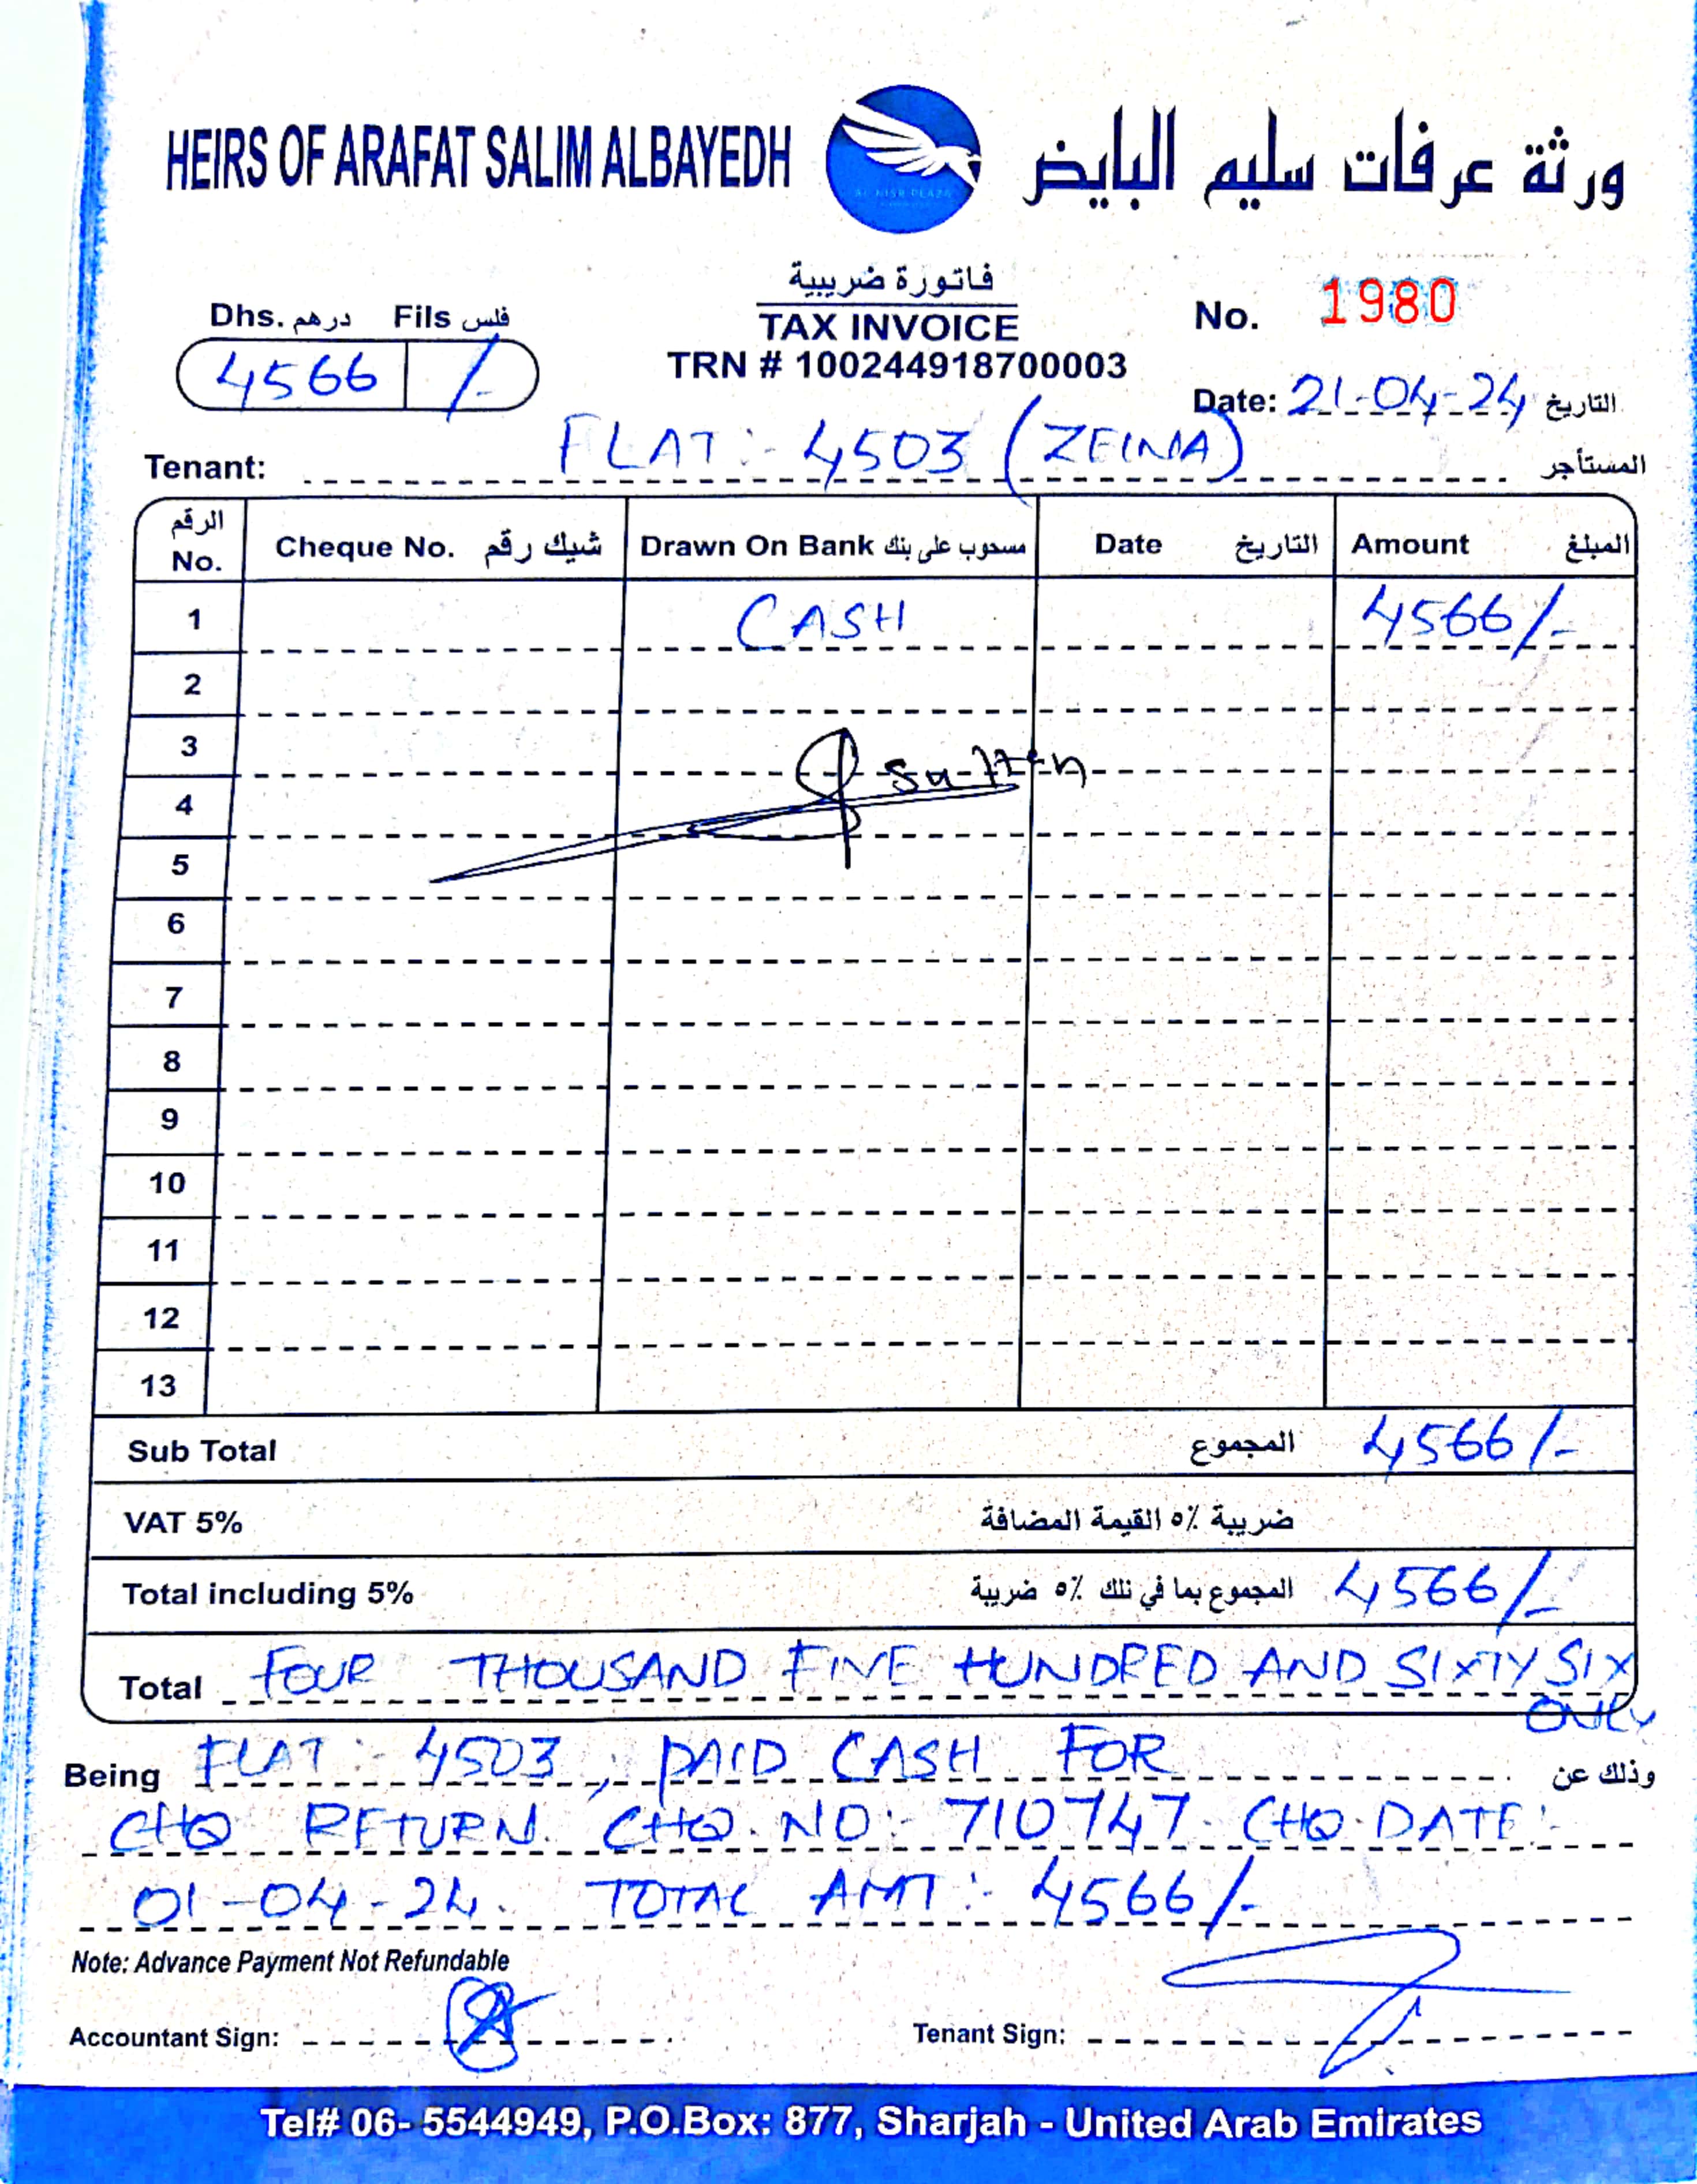 HEIRS OF ARAFAT SALIM ALBAYEDH
AL HISN PLAZA
ورثة عرفات سليم البايض
Dhs. درهم Fils فلس
4566 /-
فاتورة ضريبية
TAX INVOICE
TRN # 100244918700003
No. 1980
Date: 21-04-24 التاريخ
Tenant: FLAT:- 4503 (ZEINA) المستأجر
الرقم No. Cheque No. شيك رقم Drawn On Bank مسحوب على بنك Date التاريخ Amount المبلغ
1 CASH 4566/-
2
3
Sultan
4
5
6
7
8
9
10
11
12
13
Sub Total المجموع 4566/-
VAT 5% ضريبة ٥٪ القيمة المضافة
Total including 5% المجموع بما في ذلك ٥٪ ضريبة 4566/-
Total FOUR THOUSAND FIVE HUNDRED AND SIXTY SIX
ONLY
Being FLAT:- 4503, PAID CASH FOR وذلك عن
CHQ RETURN. CHQ. NO:- 710747. CHQ. DATE:-
01-04-24. TOTAL AMT:- 4566/-
Note: Advance Payment Not Refundable
Accountant Sign: Tenant Sign:
Tel# 06- 5544949, P.O.Box: 877, Sharjah - United Arab Emirates